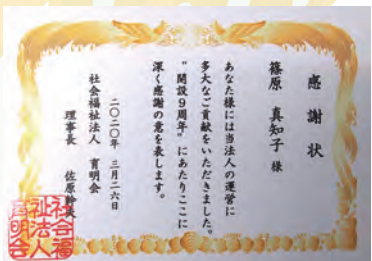 感謝状
篠原 真知子 様
あなた様には当法人の運営に
多大なご貢献をいただきました。
"開設9周年"にあたりここに
深く感謝の意を表します。
二〇二〇年 三月二六日
社会福祉法人 育明会
理事長 佐原
社会福
祉法人
育明会